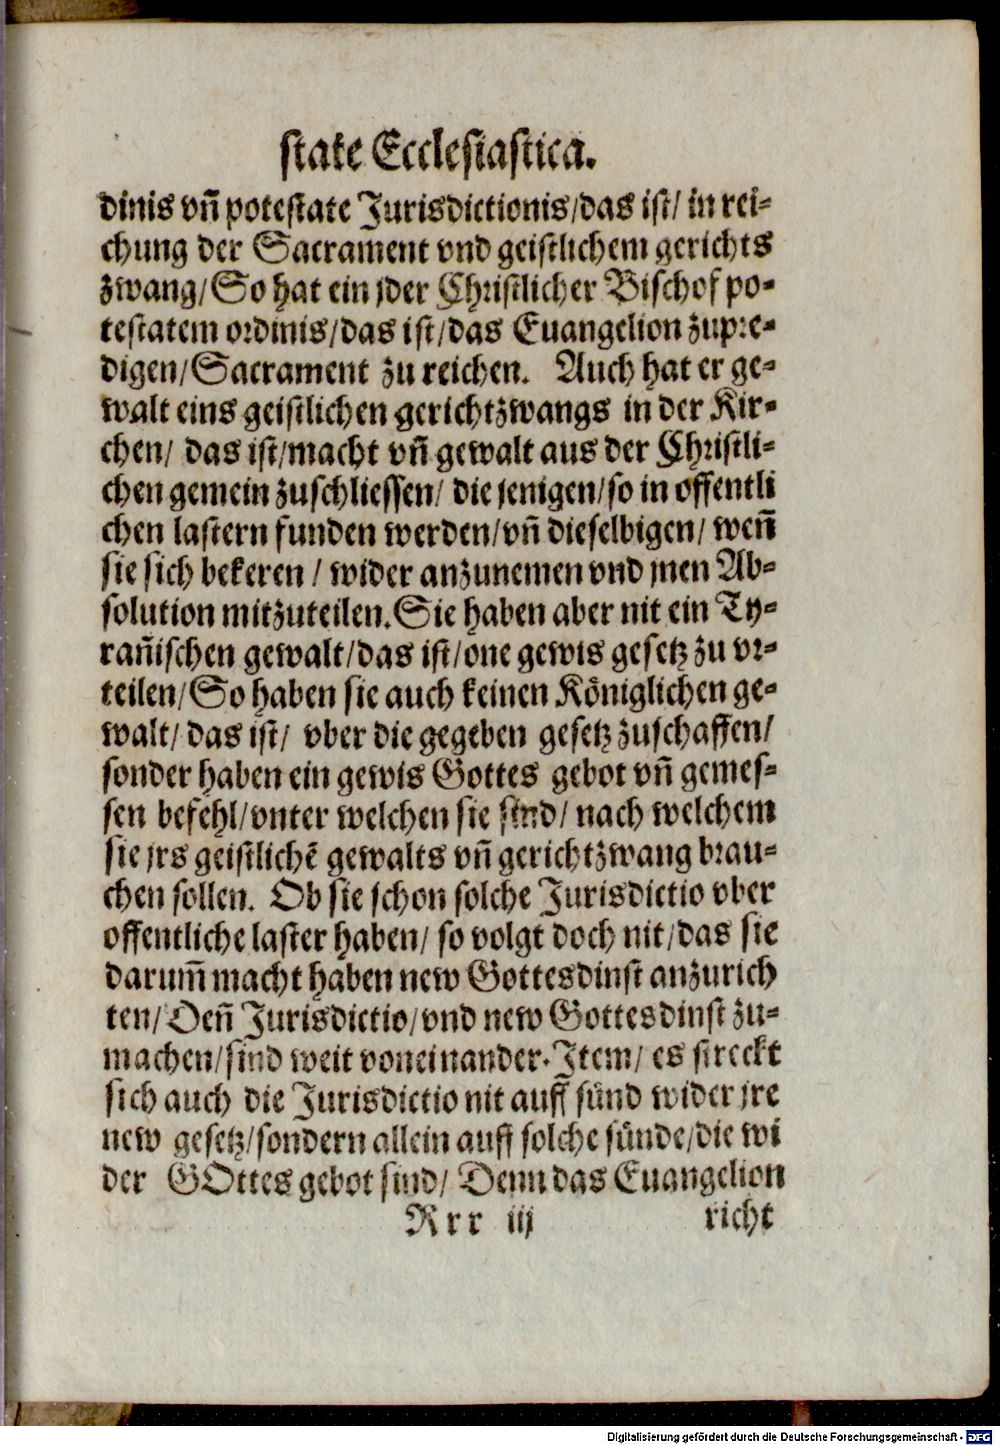 state Ecclesiastica.
dinis vñ potestate Jurisdictionis/das ist/ in rei-
chung der Sacrament vnd geistlichem gerichts
zwang/So hat ein jder Christlicher Bischof po-
testatem ordinis/das ist/das Euangelion zupre-
digen/Sacrament zu reichen. Auch hat er ge-
walt eins geistlichen gerichtzwangs in der Kir-
chen/ das ist/macht vñ gewalt aus der Christli-
chen gemein zuschliessen/ die jenigen/so in offentli
chen lastern funden werden/vñ dieselbigen/ weñ
sie sich bekeren / wider anzunemen vnd jnen Ab-
solution mitzuteilen. Sie haben aber nit ein Ty-
rañischen gewalt/das ist/one gewis gesetz zu vr-
teilen/So haben sie auch keinen Königlichen ge-
walt/ das ist/ vber die gegeben gesetz zuschaffen/
sonder haben ein gewis Gottes gebot vñ gemes-
sen befehl/vnter welchen sie sind/ nach welchem
sie jrs geistlichẽ gewalts vñ gerichtzwang brau-
chen sollen. Ob sie schon solche Jurisdictio vber
offentliche laster haben/ so volgt doch nit/das sie
darum̃ macht haben new Gottesdinst anzurich
ten/Deñ Jurisdictio/vnd new Gottesdinst zu-
machen/sind weit voneinander. Item/ es streckt
sich auch die Jurisdictio nit auff sünd wider jre
new gesetz/sondern allein auff solche sünde/die wi
der GOttes gebot sind/ Denn das Euangelion
Rrr iij richt
Digitalisierung gefördert durch die Deutsche Forschungsgemeinschaft - DFG